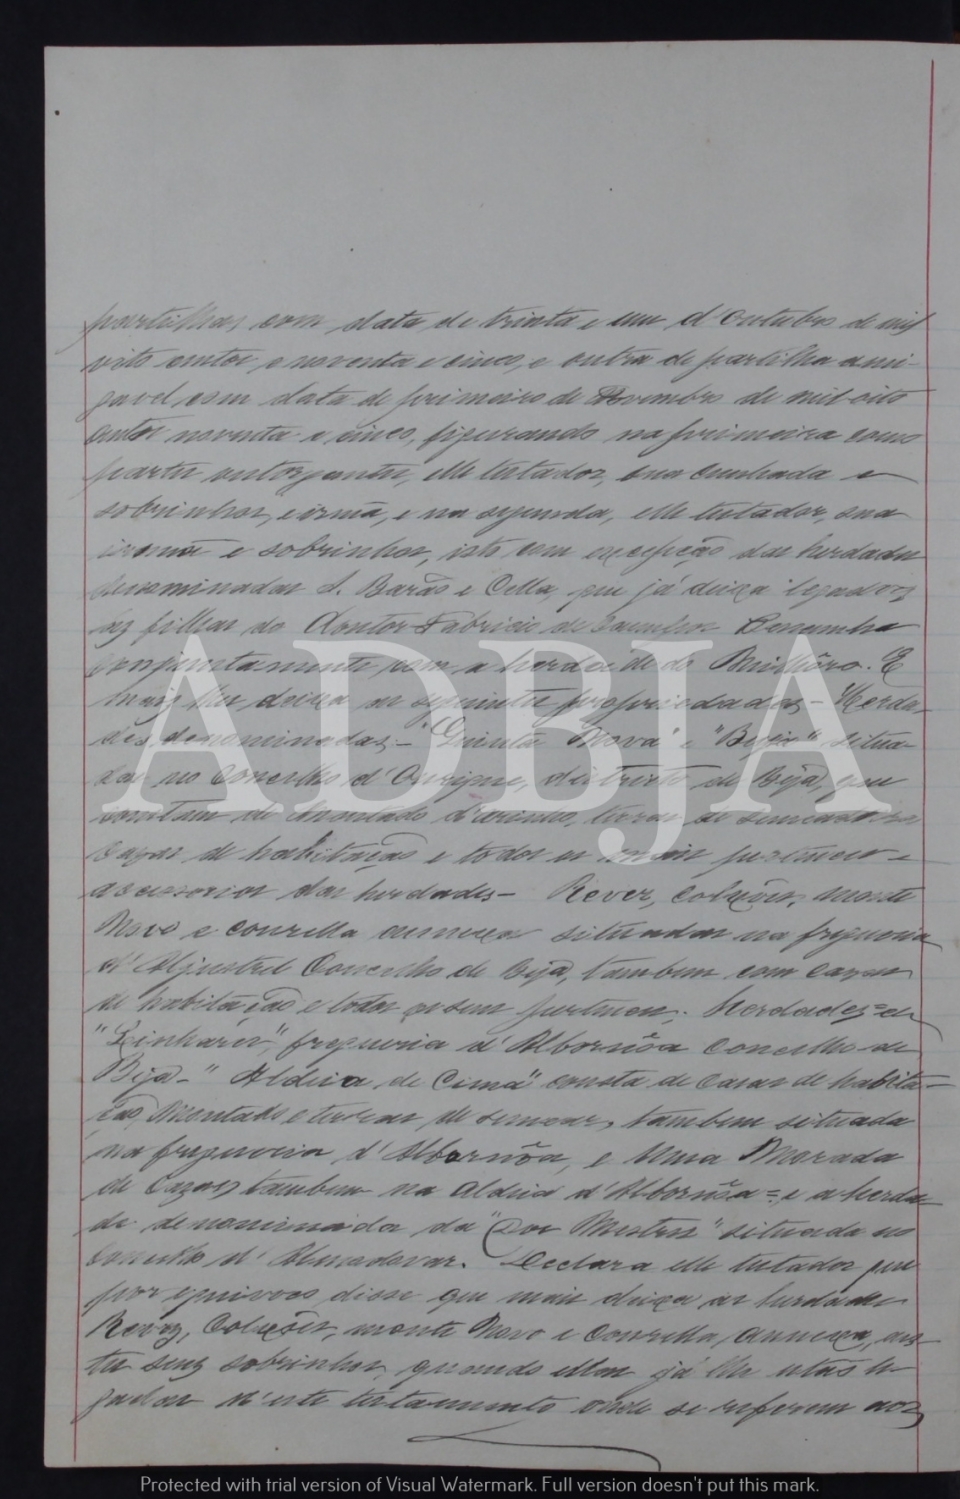 partilhas, com data de trinta e um d'Outubro de mil
oito centos e noventa e cinco, e outra de partilha ami-
gavel, com data de primeiro de Novembro de mil oito
centos noventa e cinco, figurando na primeira como
partes outorgantes, elle testador, sua cunhada e
sobrinhos, e irmã, e na segunda, elle testador, sua
irmã e sobrinhos, isto com excepção das herdades
denominadas S. Barão e Cella, que já deixa legados
ás filhas do Doutor Fabricio de
conjuntamente com a herdade do E
mais lhes deixa as seguintes propriedades - Herda-
des, denominadas - "Quinta Nova" e situa-
das no Concelho d'Ourique, districto de Beja, que
constam de montado d'azinho, terras de semeadura
cazas de habitação e todos os mais pertences e
accessorios das herdades - Revez, Colxões, Monte
Novo e courella annexa situadas na freguezia
d'Aljustrel Concelho de Beja, tambem com cazas
de habitação e todos os seus pertences. Herdades = de
"Linhares", freguezia d'Albornôa Concelho de
Beja - "Aldeia de Cima" consta de casas de habita-
ção, Montado e terras de semear, tambem situada
na freguezia d'Albornôa, e Uma Morada
de Cazas tambem na Aldeia d'Albornôa = e a herda-
de denominada da "Dos Mestres" situada no
concelho d'Almodovar. Declara elle testador que
por equivoco disse que mais deixa as herdades
Revez, Colxões, monte Novo e Courella, annexa, aes-
tes seus sobrinhos, quando ellas já lhe estão le-
gadas n'este testamento onde se referem aos
ADBJA
Protected with trial version of Visual Watermark. Full version doesn't put this mark.